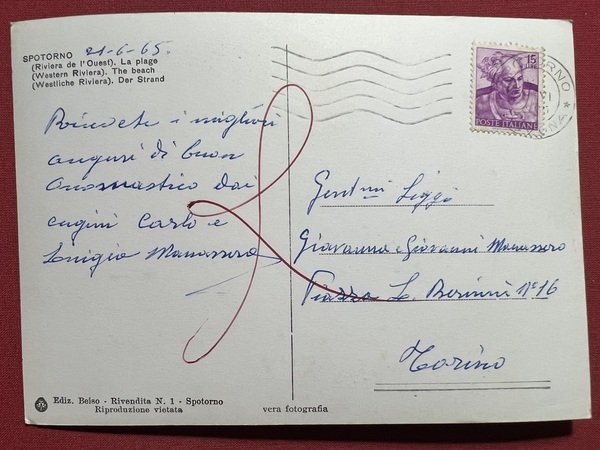 SPOTORNO 21-6-65.
(Riviera de l'Ouest). La plage
(Western Riviera). The beach
(Westliche Riviera). Der Strand
Ricevete i migliori
auguri di buon
onomastico dai
cugini Carlo e
Luigia Manassero
15
POSTE ITALIANE
Giovanna e Giovanni Manassero
Piazza L. Bernini N° 16
Torino
Ediz. Beiso - Rivendita N. 1 - Spotorno
Riproduzione vietata
vera fotografia